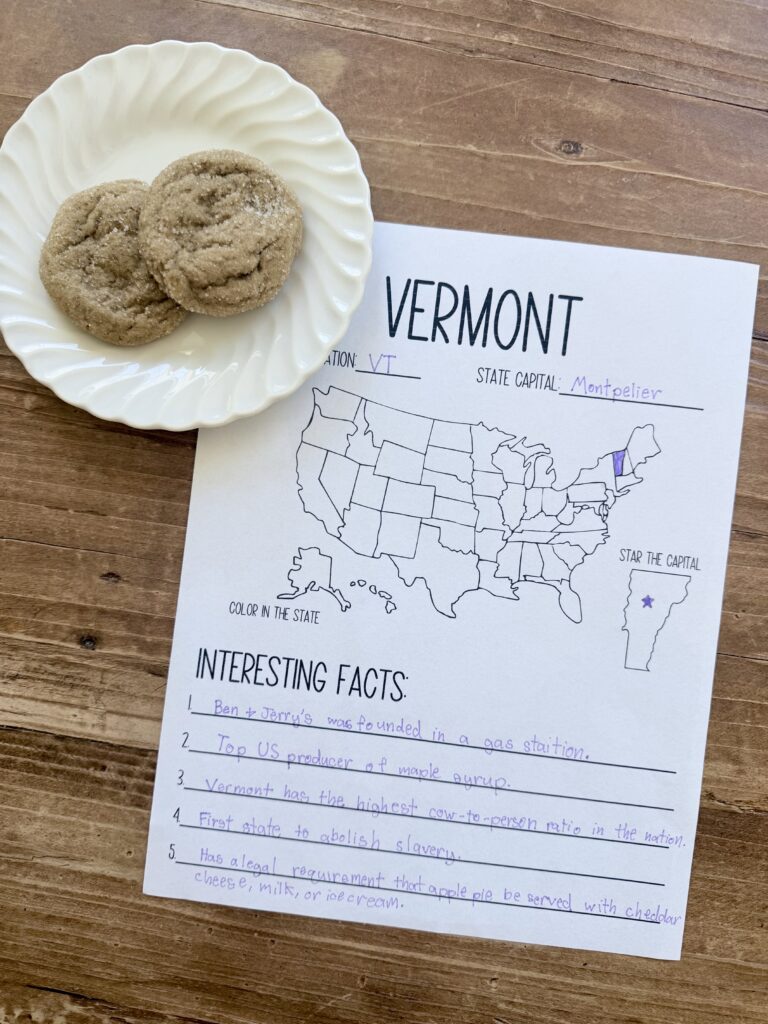 VERMONT
ATION: VT STATE CAPITAL: Montpelier
STAR THE CAPITAL
COLOR IN THE STATE
INTERESTING FACTS:
1. Ben + Jerry's was founded in a gas staition.
2. Top US producer of maple syrup.
3. Vermont has the highest cow-to-person ratio in the nation.
4. First state to abolish slavery.
5. Has a legal requirement that apple pie be served with cheddar
cheese, milk, or ice cream.